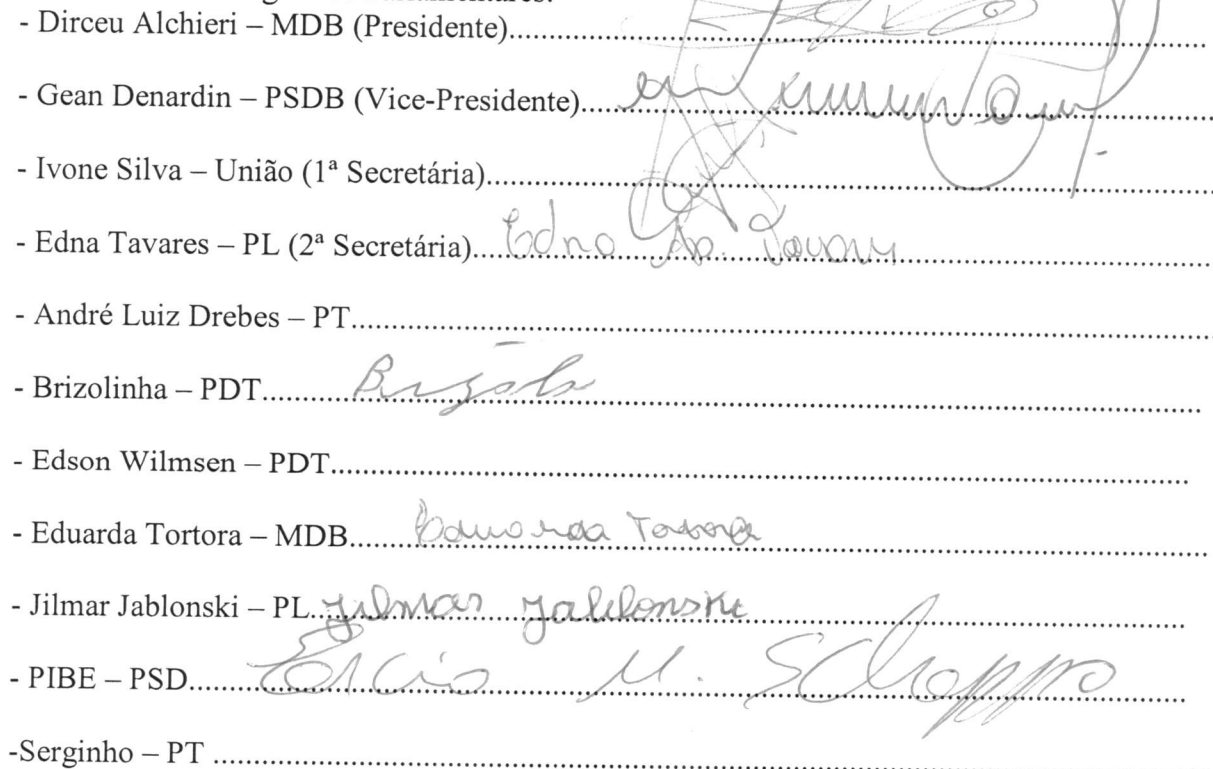 - Dirceu Alchieri – MDB (Presidente)
- Gean Denardin – PSDB (Vice-Presidente)
- Ivone Silva – União (1ª Secretária)
- Edna Tavares – PL (2ª Secretária) Edna Ap. Tavares
- André Luiz Drebes – PT
- Brizolinha – PDT
- Edson Wilmsen – PDT
- Eduarda Tortora – MDB Eduarda Tortora
- Jilmar Jablonski – PL Jilmar Jablonski
- PIBE – PSD
-Serginho – PT